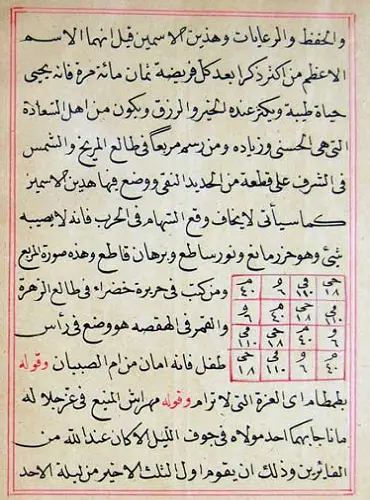 والحفظ والرعايات وهذين الاسمين قيل انهما الاسم
الاعظم من اكثر ذكرا بعد كل فريضة ثمان مائة مرة فانه يحيى
حياة طيبة ويكثر عنده الخير والرزق ويكون من اهل السعادة
التى هى الحسنى وزياده ومن رسم مربعا فى طالع المريخ والشمس
فى الشرف على قطعة من الحديد النقى ووضع فيها هذين الاسمين
كما سيأتى لا يخاف وقع السهام فى الحرب فانه لا يصيبه
شئ وهو حرز مانع ونور ساطع وبرهان قاطع وهذه صورة المربع
ومن كتب فى حريرة خضراء فى طالع الزهرة
والقمر فى ووضع فى رأس
طفل فانه امان من ام الصبيان وقوله
٤٠ ٦ ١١٠ ١٨
٦ ٤٠ ١٨ ١١٠
١١٠ ١٨ ٤٠ ٦
١٨ ١١٠ ٦ ٤٠
بطمطام اى العزة التى لا ترام وقوله مهراش المنيع فى عز جلاله
ما ناجا بهما احد مولاه فى جوف الليل الا كان عند الله من
الفائزين وذلك ان يقوم اول الثلث الاخير من ليلة الاحد